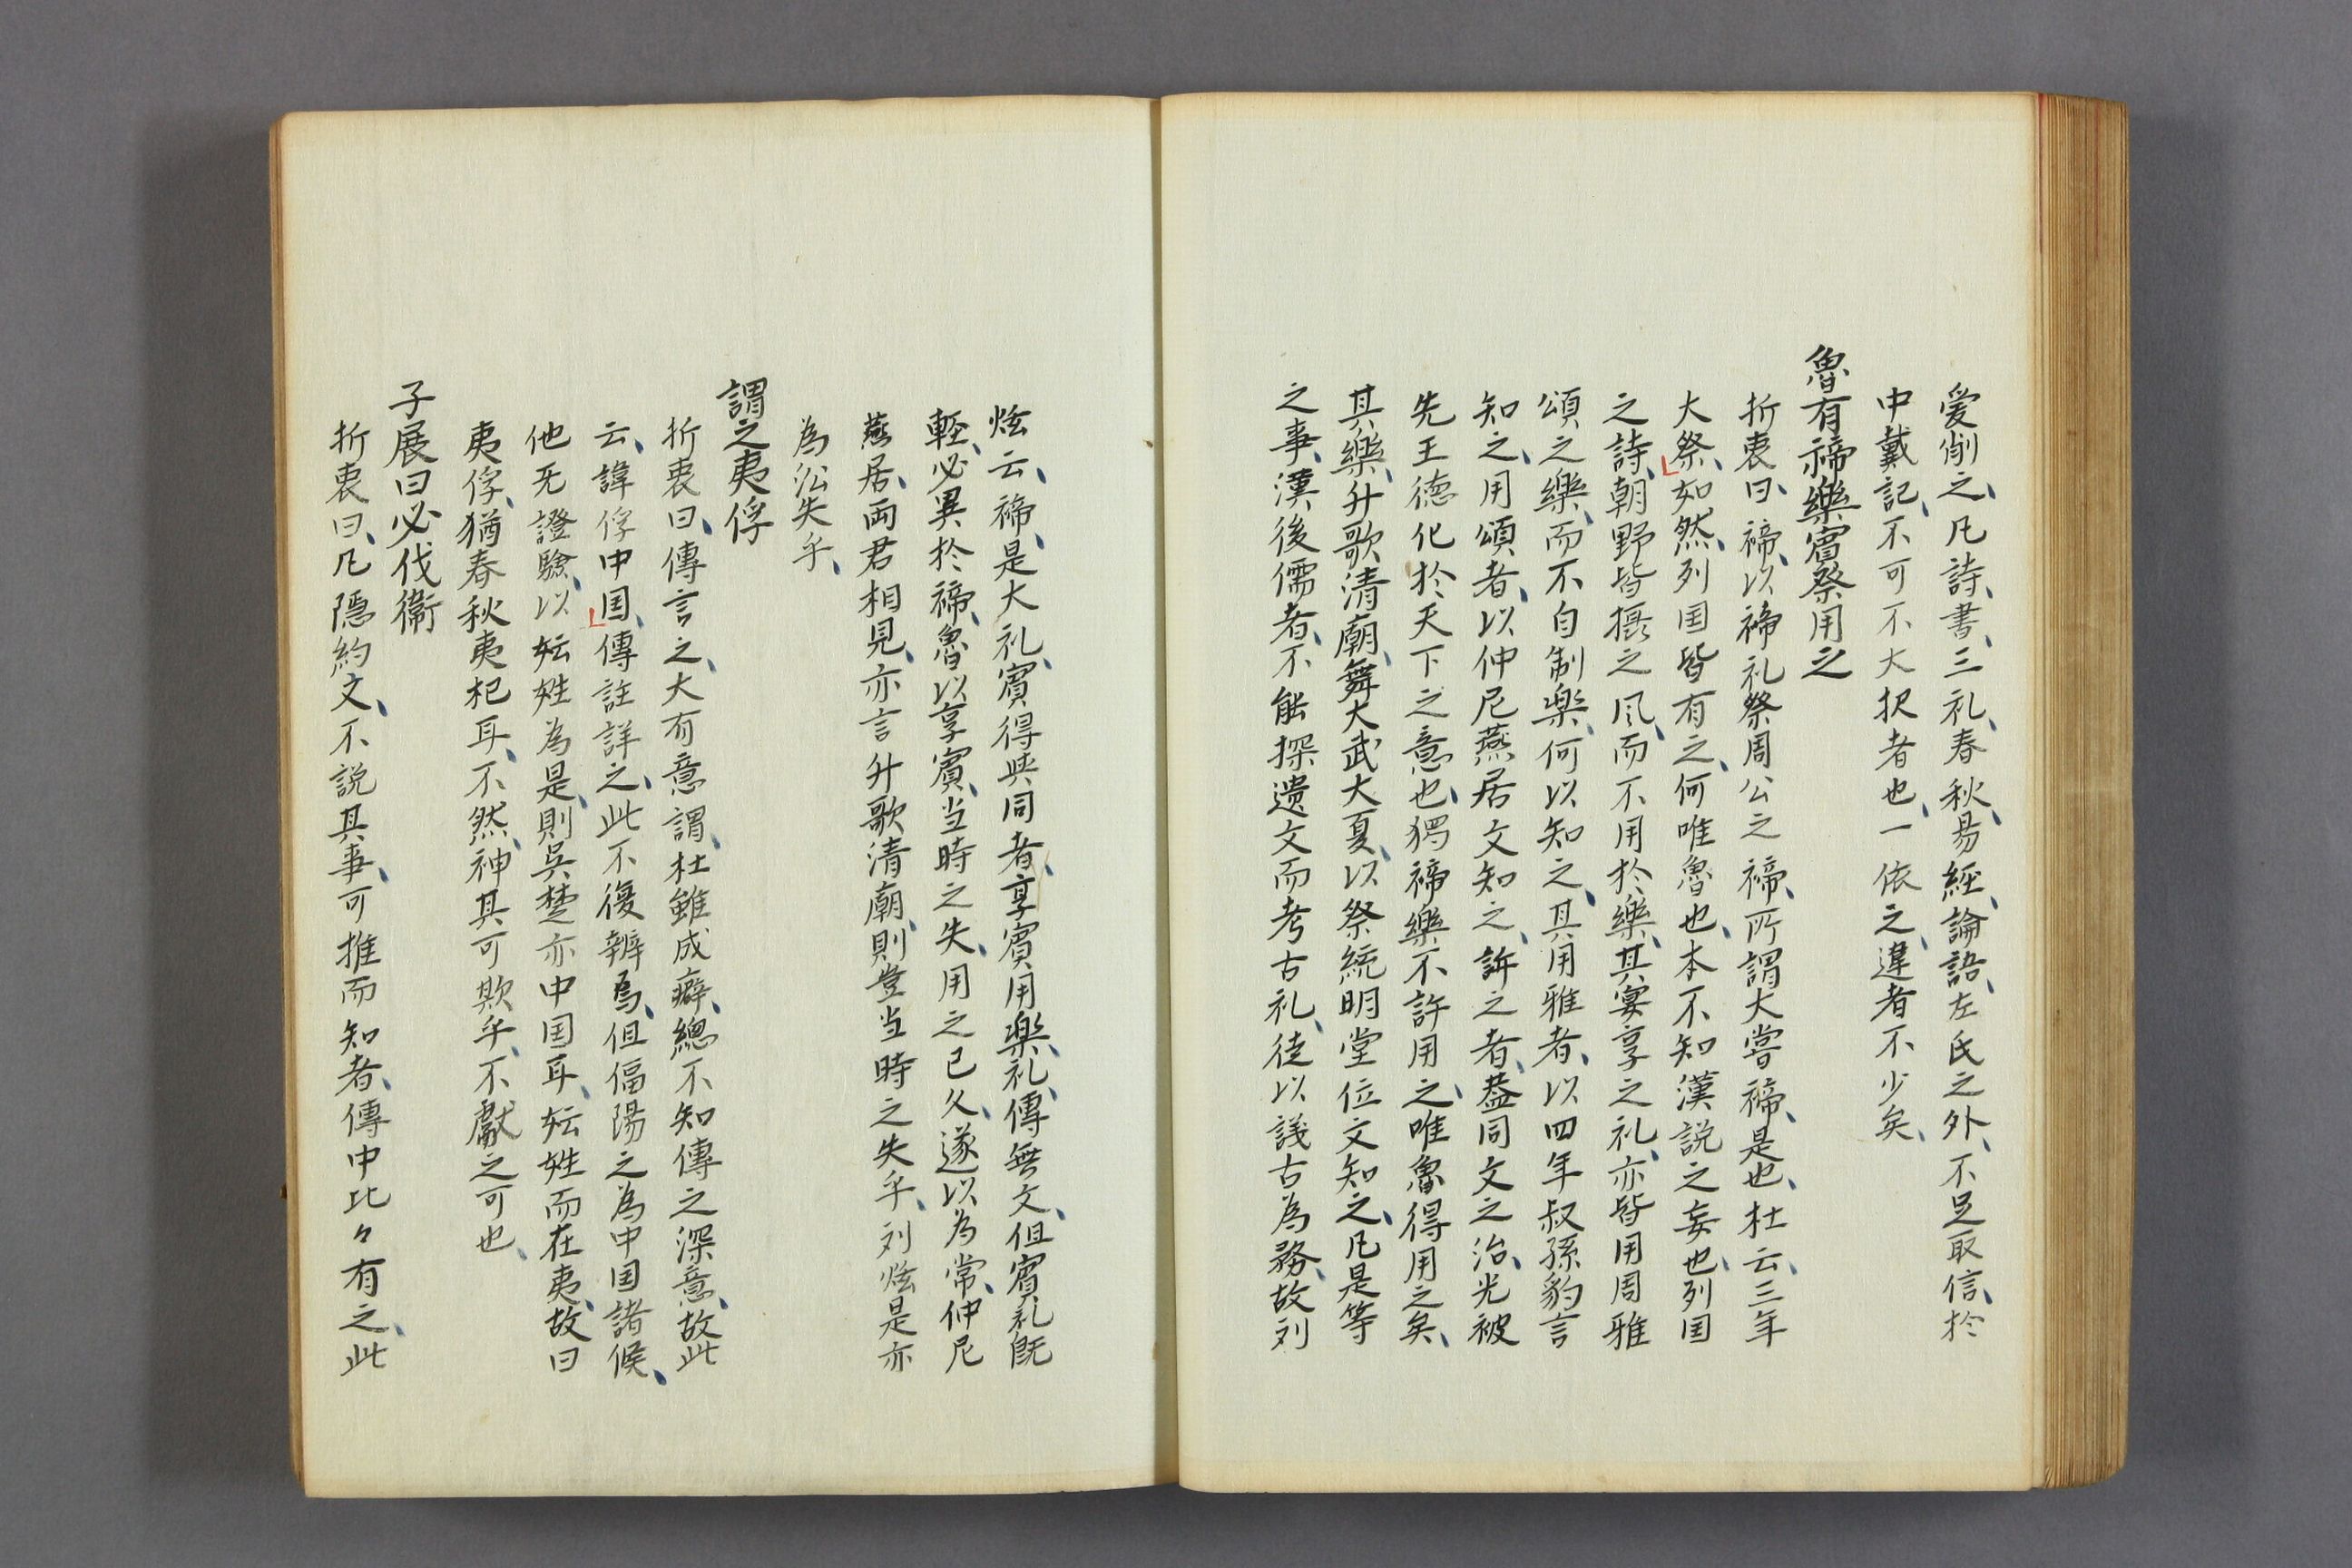 爰削之、凡詩、書、三礼、春秋、易経、論語、左氏之外、不足取信、於
中戴記、不可不大択者也、一依之、違者不少矣、
魯有禘樂賓祭用之
折衷曰、禘、以禘礼祭周公之禘、所謂大嘗禘、是也、杜云、三年
大祭、如然、列国皆有之、何唯魯也、本不知漢説之妄也、列国
之詩、朝野皆摭之風、而不用於樂、其宴享之礼、亦皆用周雅
頌之樂、而不自制楽、何以知之、其用雅者、以四年叔孫豹言
知之、用頌者、以仲尼燕居文知之、訴之者、蓋同文之治、光被
先王徳化於天下之意也、獨禘樂不許用之、唯魯得用之矣、
其樂、升歌清廟、舞大武大夏、以祭統明堂位文知之、凡是等
之事、漢後儒者、不能探遺文而考古礼、徒以議古為務、故列
炫云、禘、是大礼、賓得與同者、享賓用楽、礼、傳無文、但賓礼既
軽、必異於禘、魯以享賓、当時之失、用之已久、遂以為常、仲尼
燕居、両君相見、亦言升歌清廟、則豈当時之失乎、列炫是亦
為訟失乎、
謂之夷俘
折衷曰、傳言之、大有意謂、杜雖成癖、總不知傳之深意、故此
云、諱俘中国、傳註詳之、此不復辨焉、但偪陽之為中国諸侯、
他旡證驗、以妘姓為是、則呉楚亦中国耳、妘姓而在夷、故曰
夷俘、猶春秋夷杞耳、不然、神其可欺乎、不獻之可也、
子展曰必伐衞
折衷曰、凡隠約文、不説其事、可推而知者、傳中比々有之、此